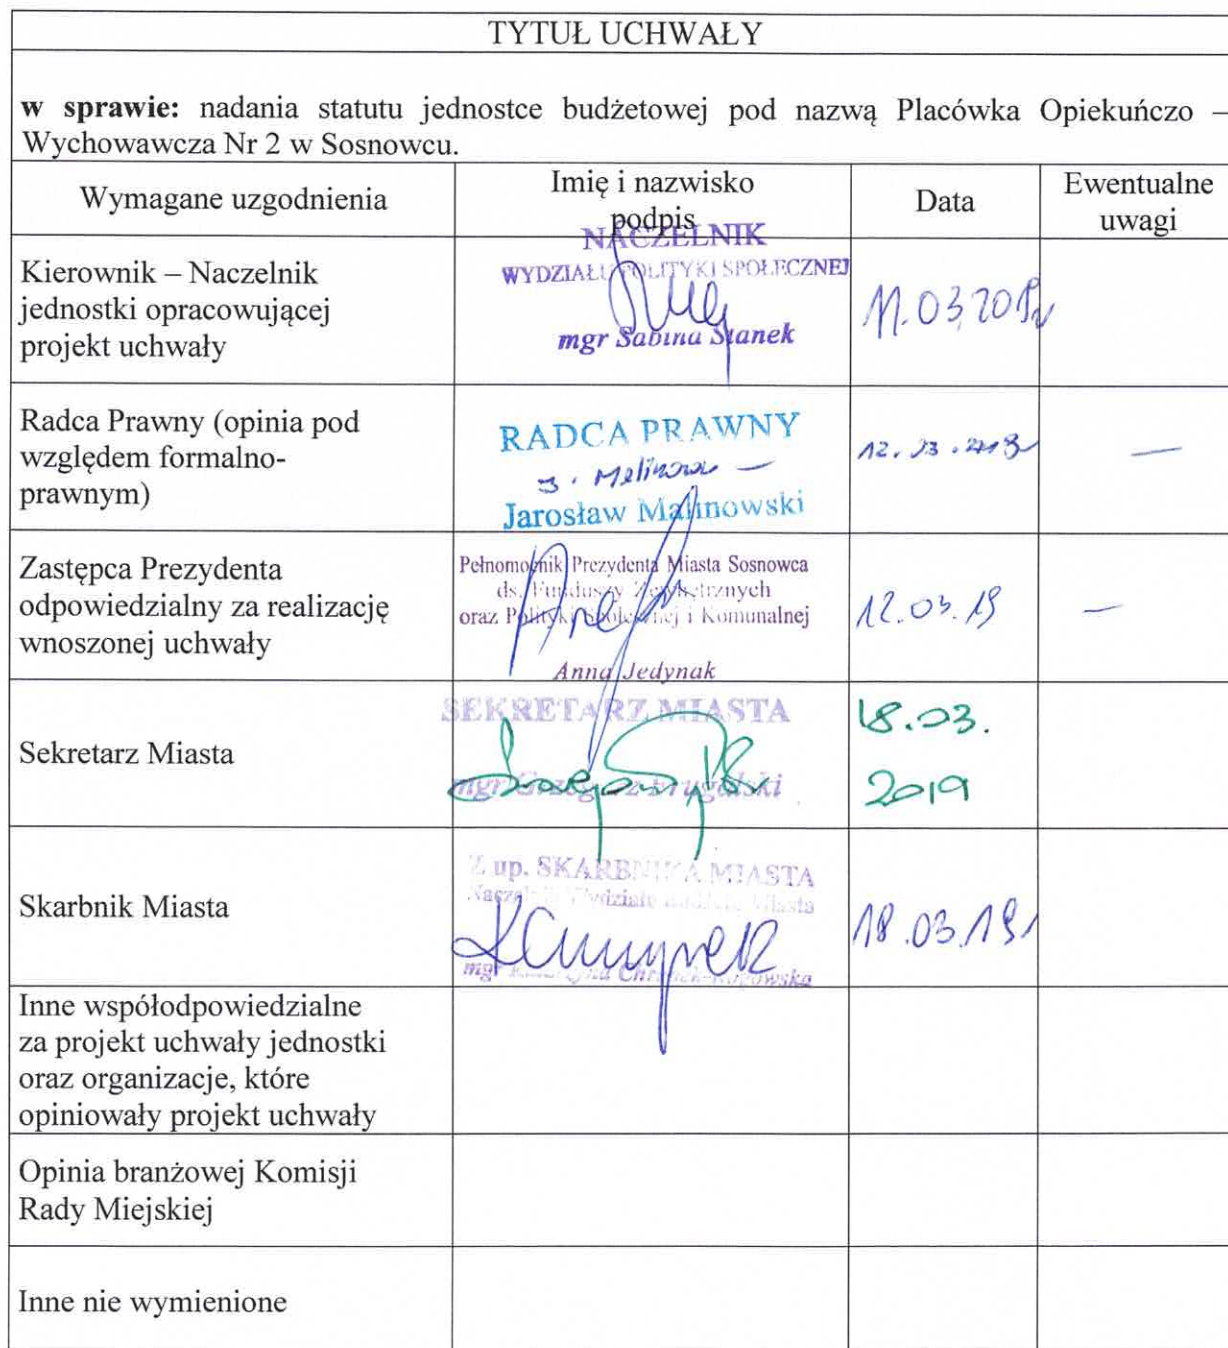 TYTUŁ UCHWAŁY
w sprawie: nadania statutu jednostce budżetowej pod nazwą Placówka Opiekuńczo –
Wychowawcza Nr 2 w Sosnowcu.
Wymagane uzgodnienia
Imię i nazwisko
podpis
Data
Ewentualne
uwagi
Kierownik – Naczelnik
jednostki opracowującej
projekt uchwały
NACZELNIK
WYDZIAŁU POLITYKI SPOŁECZNEJ
mgr Sabina Stanek
11.03.2019r
Radca Prawny (opinia pod
względem formalno-
prawnym)
RADCA PRAWNY
Jarosław Malinowski
12.03.2019
—
Zastępca Prezydenta
odpowiedzialny za realizację
wnoszonej uchwały
Pełnomocnik Prezydenta Miasta Sosnowca
ds. Funduszy Zewnętrznych
oraz Polityki Społecznej i Komunalnej
Anna Jedynak
12.03.19
—
Sekretarz Miasta
SEKRETARZ MIASTA
mgr Grzegorz
18.03.
2019
Skarbnik Miasta
Z up. SKARBNIKA MIASTA
Naczelnik Wydziału Budżetu Miasta
mgr Katarzyna
18.03.19r
Inne współodpowiedzialne
za projekt uchwały jednostki
oraz organizacje, które
opiniowały projekt uchwały
Opinia branżowej Komisji
Rady Miejskiej
Inne nie wymienione